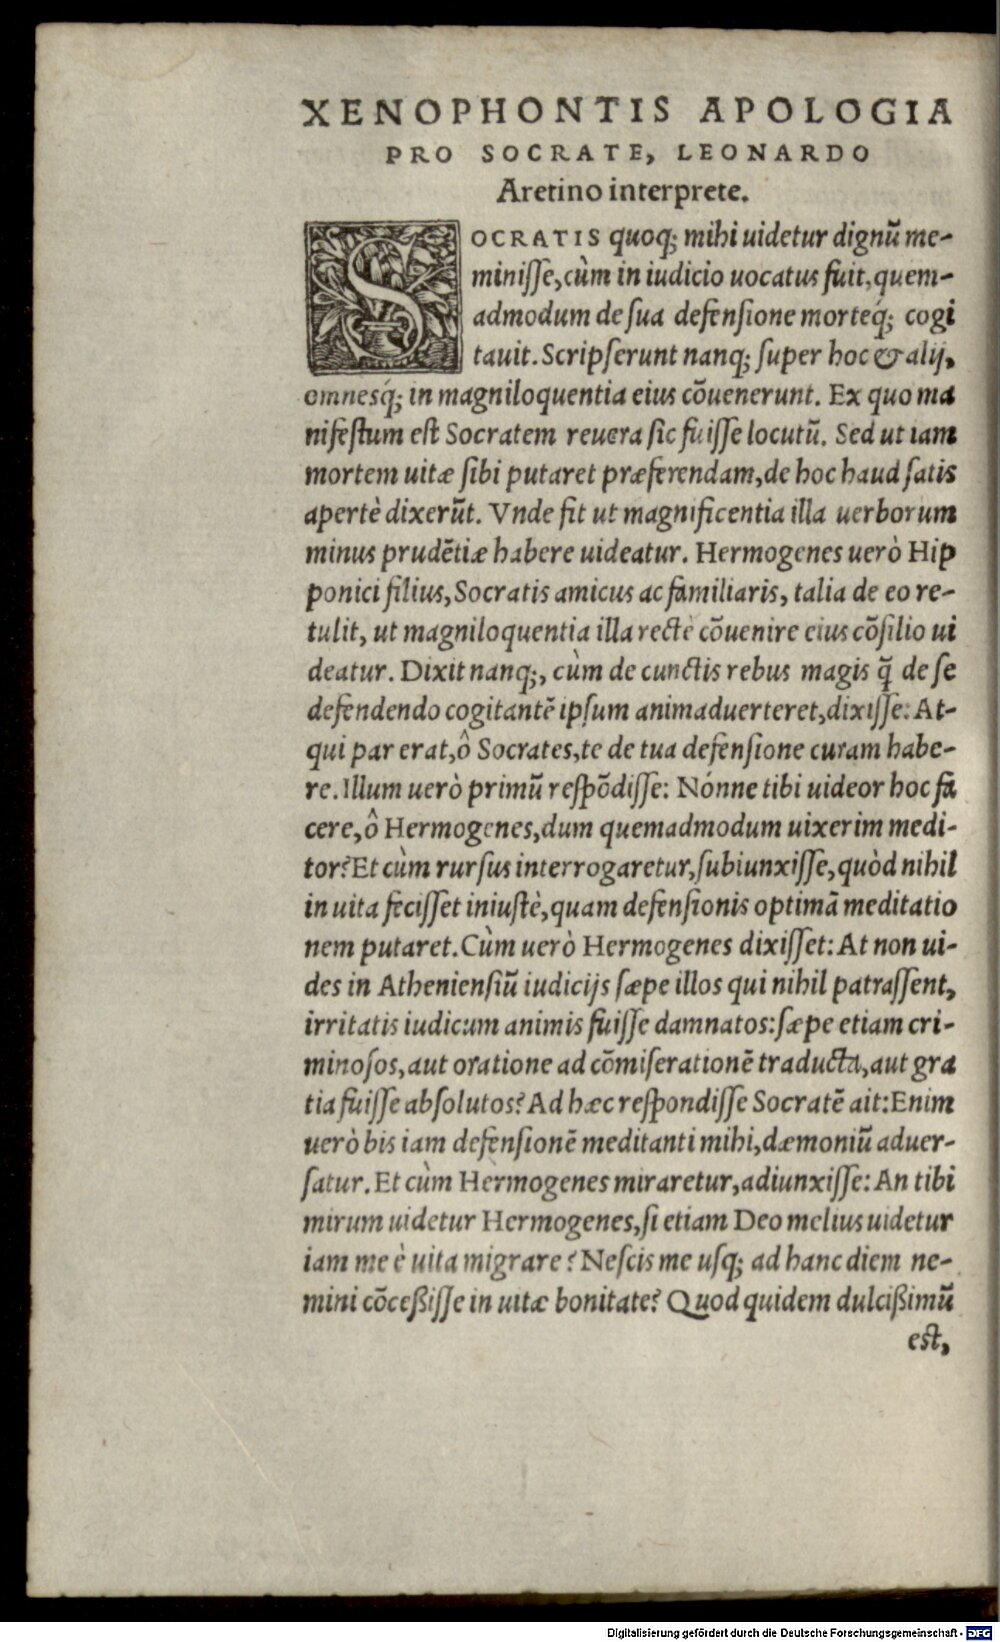 XENOPHONTIS APOLOGIA
PRO SOCRATE, LEONARDO
Aretino interprete.
SOCRATIS quoq; mihi uidetur dignũ me-
minisse, cùm in iudicio uocatus fuit, quem-
admodum de sua defensione morteq́; cogi
tauit. Scripserunt nanq; super hoc & alij,
omnesq́; in magniloquentia eius cõuenerunt. Ex quo ma
nifestum est Socratem reuera sic fuisse locutũ. Sed ut iam
mortem uitæ sibi putaret præferendam, de hoc haud satis
apertè dixerũt. Vnde fit ut magnificentia illa uerborum
minus prudẽtiæ habere uideatur. Hermogenes uerò Hip
ponici filius, Socratis amicus ac familiaris, talia de eo re-
tulit, ut magniloquentia illa recte cõuenire eius cõsilio ui
deatur. Dixit nanq;, cùm de cunctis rebus magis q̃ de se
defendendo cogitantẽ ipsum animaduerteret, dixisse: At-
qui par erat, ô Socrates, te de tua defensione curam habe-
re. Illum uerò primũ respõdisse: Nónne tibi uideor hoc fa
cere, ô Hermogenes, dum quemadmodum uixerim medi-
tor? Et cùm rursus interrogaretur, subiunxisse, quòd nihil
in uita fecisset iniustè, quam defensionis optimã meditatio
nem putaret. Cùm uerò Hermogenes dixisset: At non ui-
des in Atheniensiũ iudicijs sæpe illos qui nihil patrassent,
irritatis iudicum animis fuisse damnatos: sæpe etiam cri-
minosos, aut oratione ad cõmiserationẽ traducta, aut gra
tia fuisse absolutos? Ad hæc respondisse Socratẽ ait: Enim
uerò bis iam defensionẽ meditanti mihi, dæmoniũ aduer-
satur. Et cùm Hermogenes miraretur, adiunxisse: An tibi
mirum uidetur Hermogenes, si etiam Deo melius uidetur
iam me è uita migrare? Nescis me usq; ad hanc diem ne-
mini cõceßisse in uitæ bonitate? Quod quidem dulcißimũ
est,
Digitalisierung gefördert durch die Deutsche Forschungsgemeinschaft - DFG